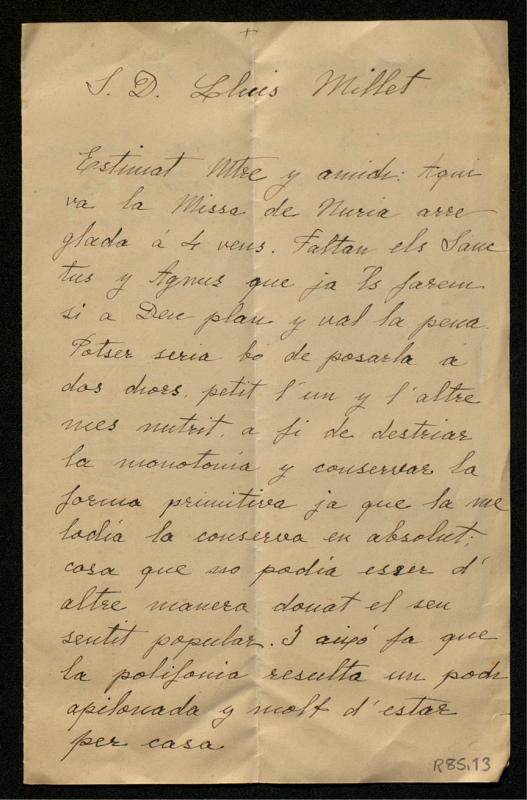 +
S. D. Lluis Millet
Estimat Mtre y amich: Aqui
va la Missa de Nuria arre
glada á 4 veus. Faltan els Sanc
tus y Agnus que ja 'ls farem
si a Deu plau y val la pena.
Potser seria bó de posarla á
dos chors, petit l'un y l'altre
mes nutrit, a fi de destriar
la monotonia y conservar la
forma primitiva ja que la me
lodía la conserva en absolut;
cosa que no podía esser d'
altre manera donat el seu
sentit popular. I aixó fa que
la polifonia resulta un poch
apilonada y molt d'estar
per casa
R85.13